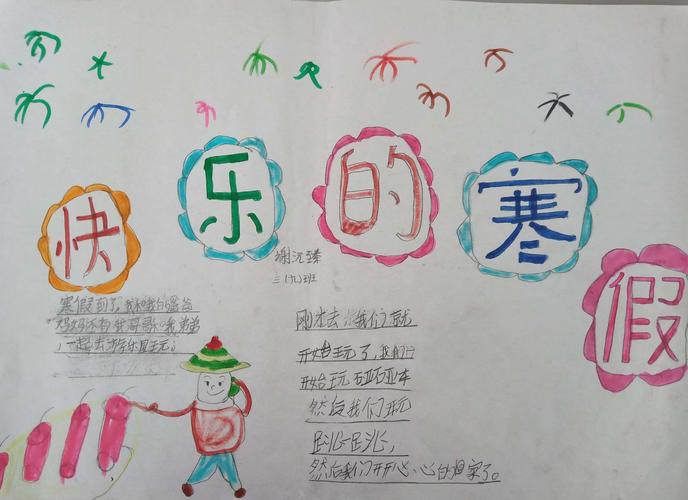 快乐的寒假
谢沅臻
三(九)班
寒假到了,我和我的爸爸
妈妈还有我哥哥和我弟弟
一起去游乐园玩。
刚才去,我们就
开始玩了,我们
开始玩碰碰车
然后我们玩
跳跳,
然后我们开开心心的回家了。